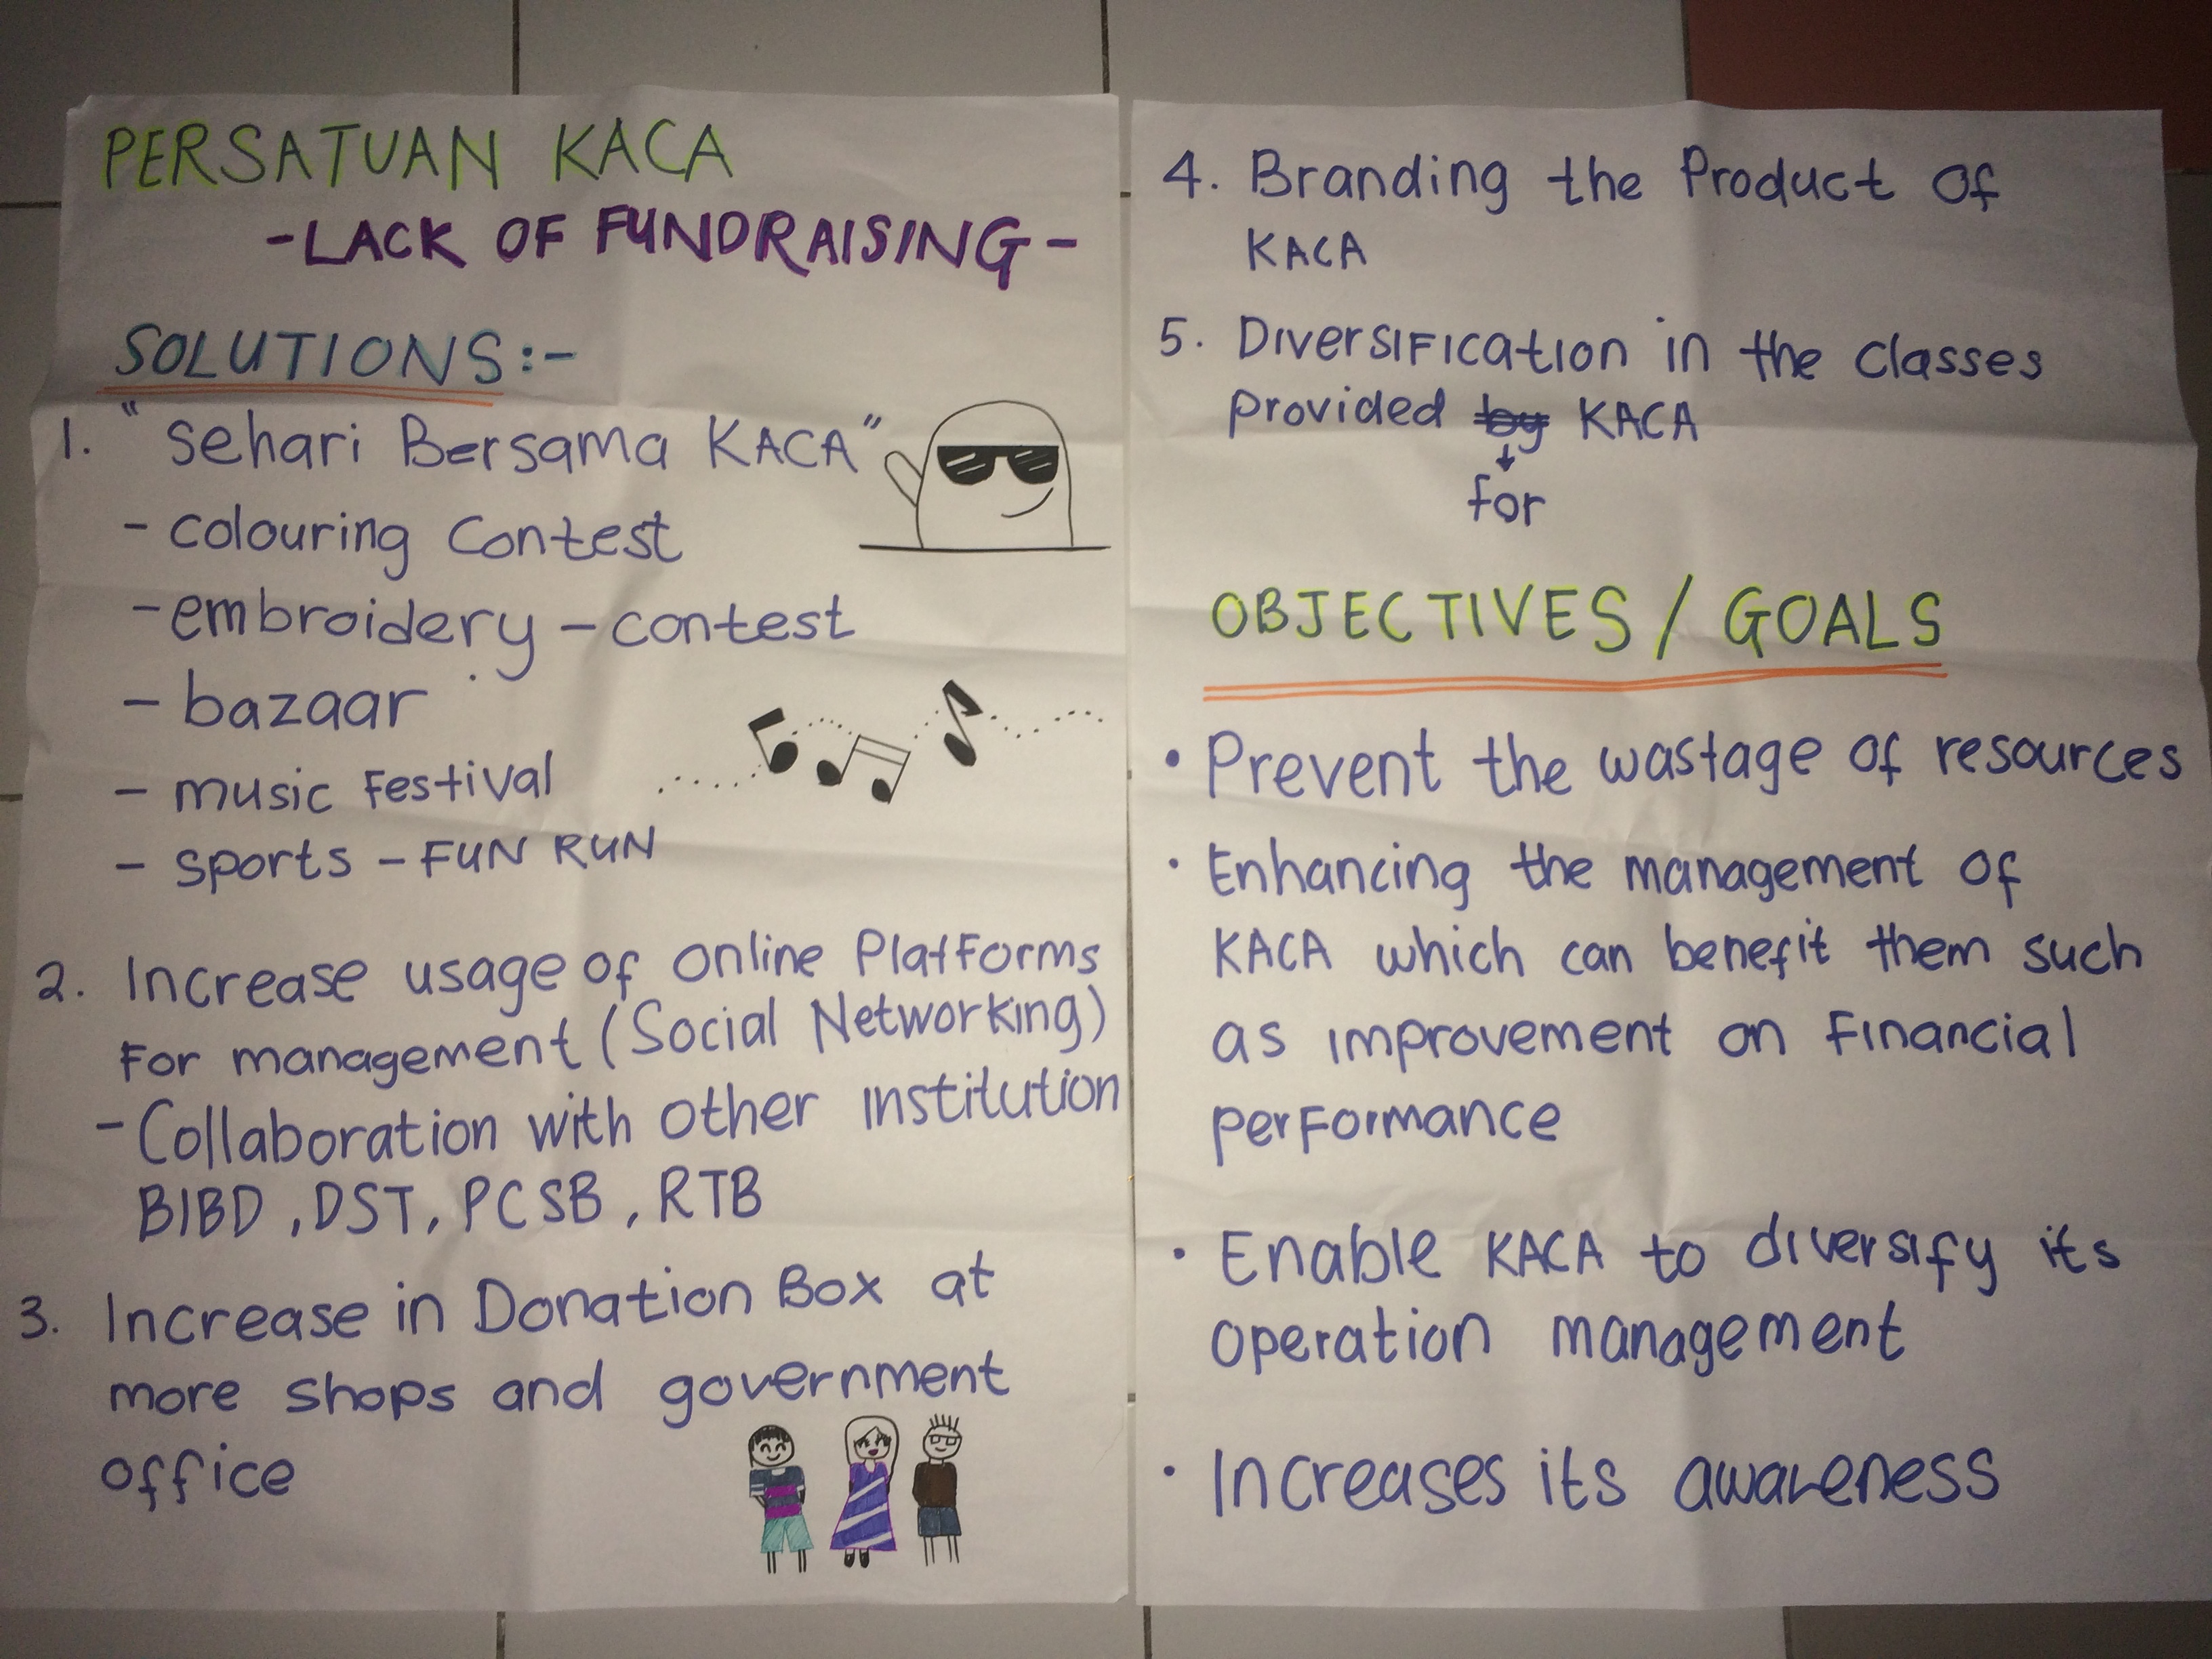 PERSATUAN KACA
-LACK OF FUNDRAISING-
SOLUTIONS:-
1. "Sehari Bersama KACA"
- colouring contest
- embroidery - contest
- bazaar
- music Festival
- sports - FUN RUN
2. Increase usage of online Platforms
For management (Social Networking)
- Collaboration with other institution
BIBD, DST, PCSB, RTB
3. Increase in Donation Box at
more shops and government
office
4. Branding the Product of
KACA
5. Diversification in the classes
provided by KACA
for
OBJECTIVES / GOALS
• Prevent the wastage of resources
• Enhancing the management of
KACA which can benefit them such
as improvement on Financial
performance
• Enable KACA to diversify its
operation management
• Increases its awareness